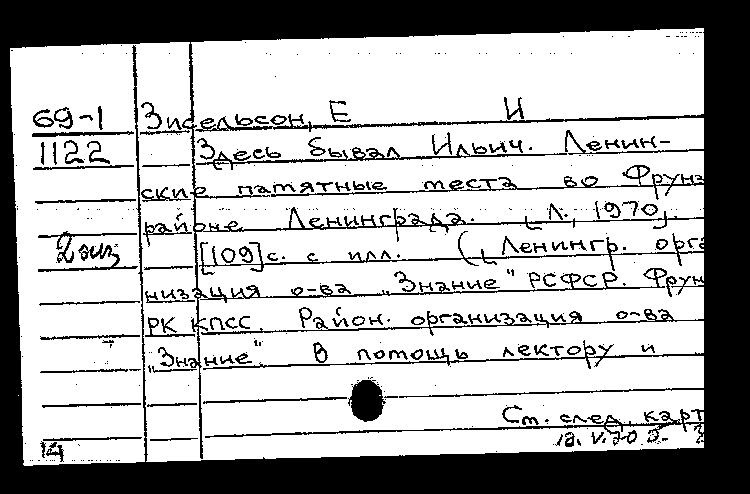 69-1 Зисельсон, Е И
1122 Здесь бывал Ильич. Ленин-
ские памятные места во Фрунз
районе Ленинграда. [Л., 1970].
2 экз [109]с. с илл. ([Ленингр. орга
низация о-ва „Знание" РСФСР. Фрун
РК КПСС. Район. организация о-ва
„Знание". В помощь лектору и
См. след. карт
14